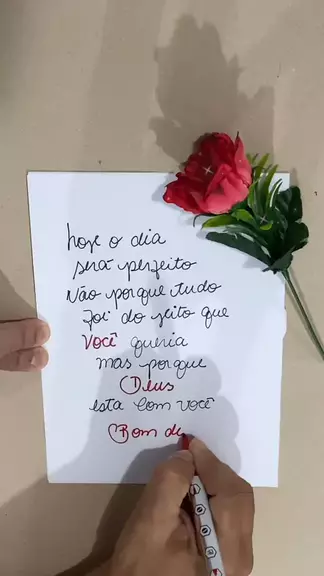 hoje o dia
será perfeito
Não porque tudo
foi do jeito que
VOCÊ queria
mas porque
Deus
esta com você
Bom di